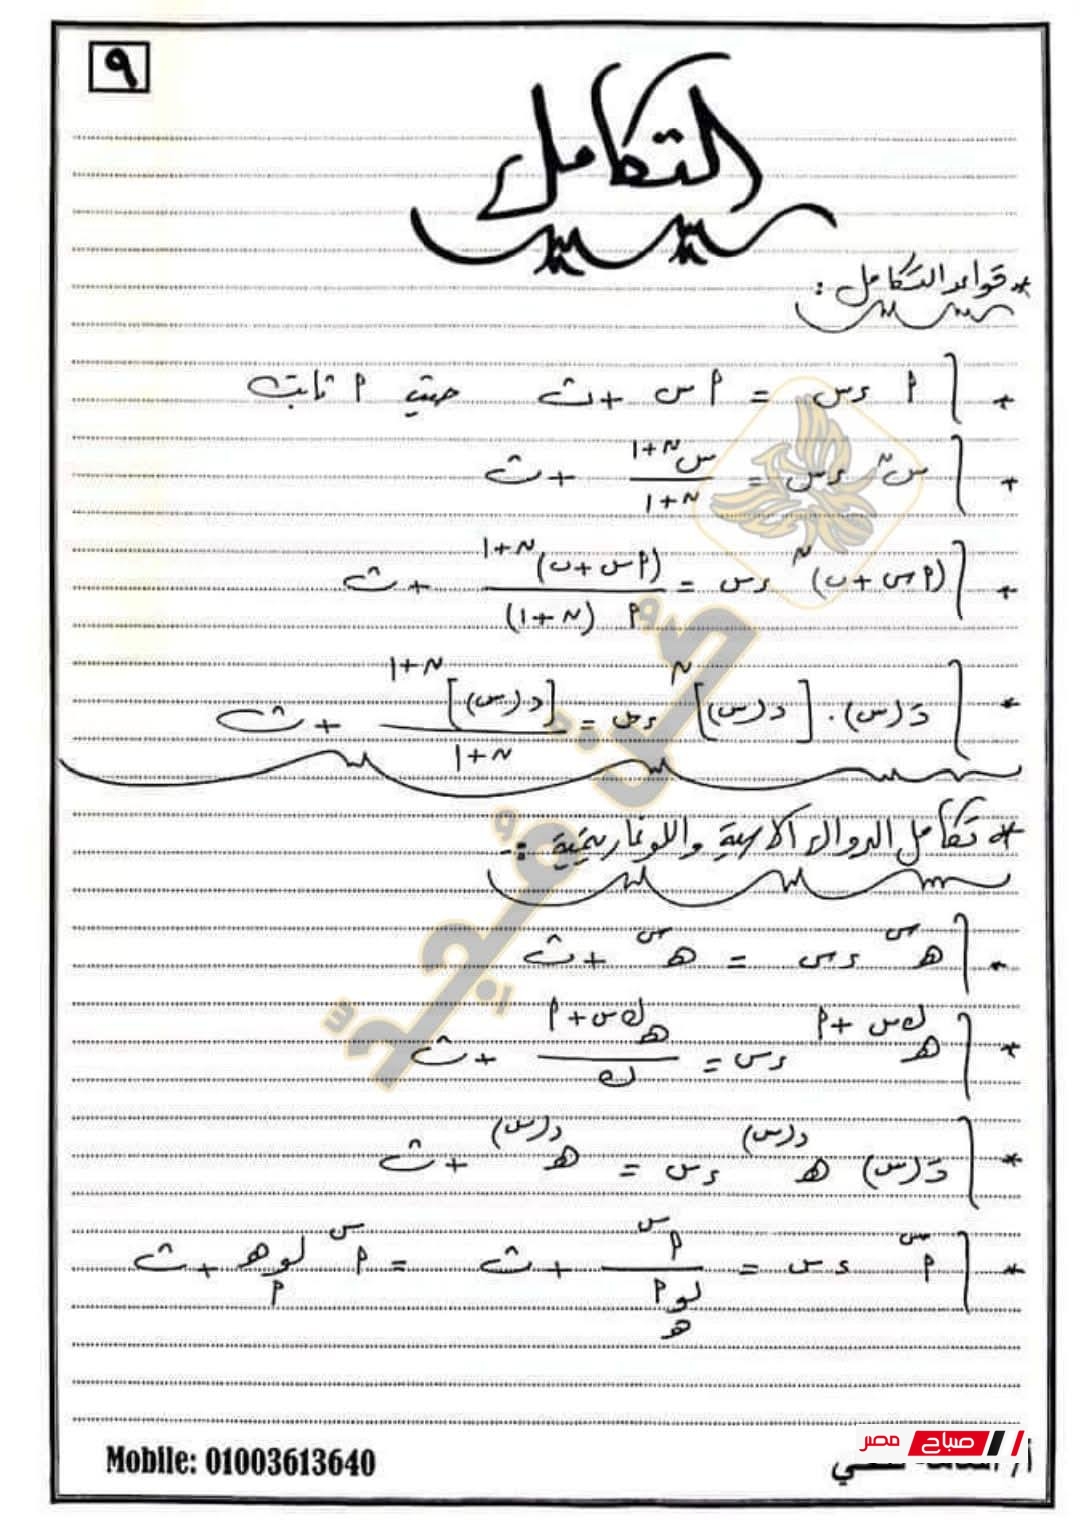 ٩
التكامل
* قواعد التكامل :
* ∫ ٩ ءس = ٩ س + ث حيث ٩ ثابت
* ∫ س^ن ءس = س^(ن+١) / (ن+١) + ث
* ∫ (٩س + ب)^ن ءس = (٩س + ب)^(ن+١) / ٩ (ن+١) + ث
* ∫ دَ(س) . [د(س)]^ن ءس = [د(س)]^(ن+١) / (ن+١) + ث
* تكامل الدوال الأسية واللوغاريتمية :-
* ∫ هـ^س ءس = هـ^س + ث
* ∫ هـ^(ك س + ٩) ءس = هـ^(ك س + ٩) / ك + ث
* ∫ دَ(س) هـ^د(س) ءس = هـ^د(س) + ث
* ∫ ٩^س ءس = ٩^س / لو_هـ ٩ + ث = ٩^س لو_٩ هـ + ث
Mobile: 01003613640
صباح مصر